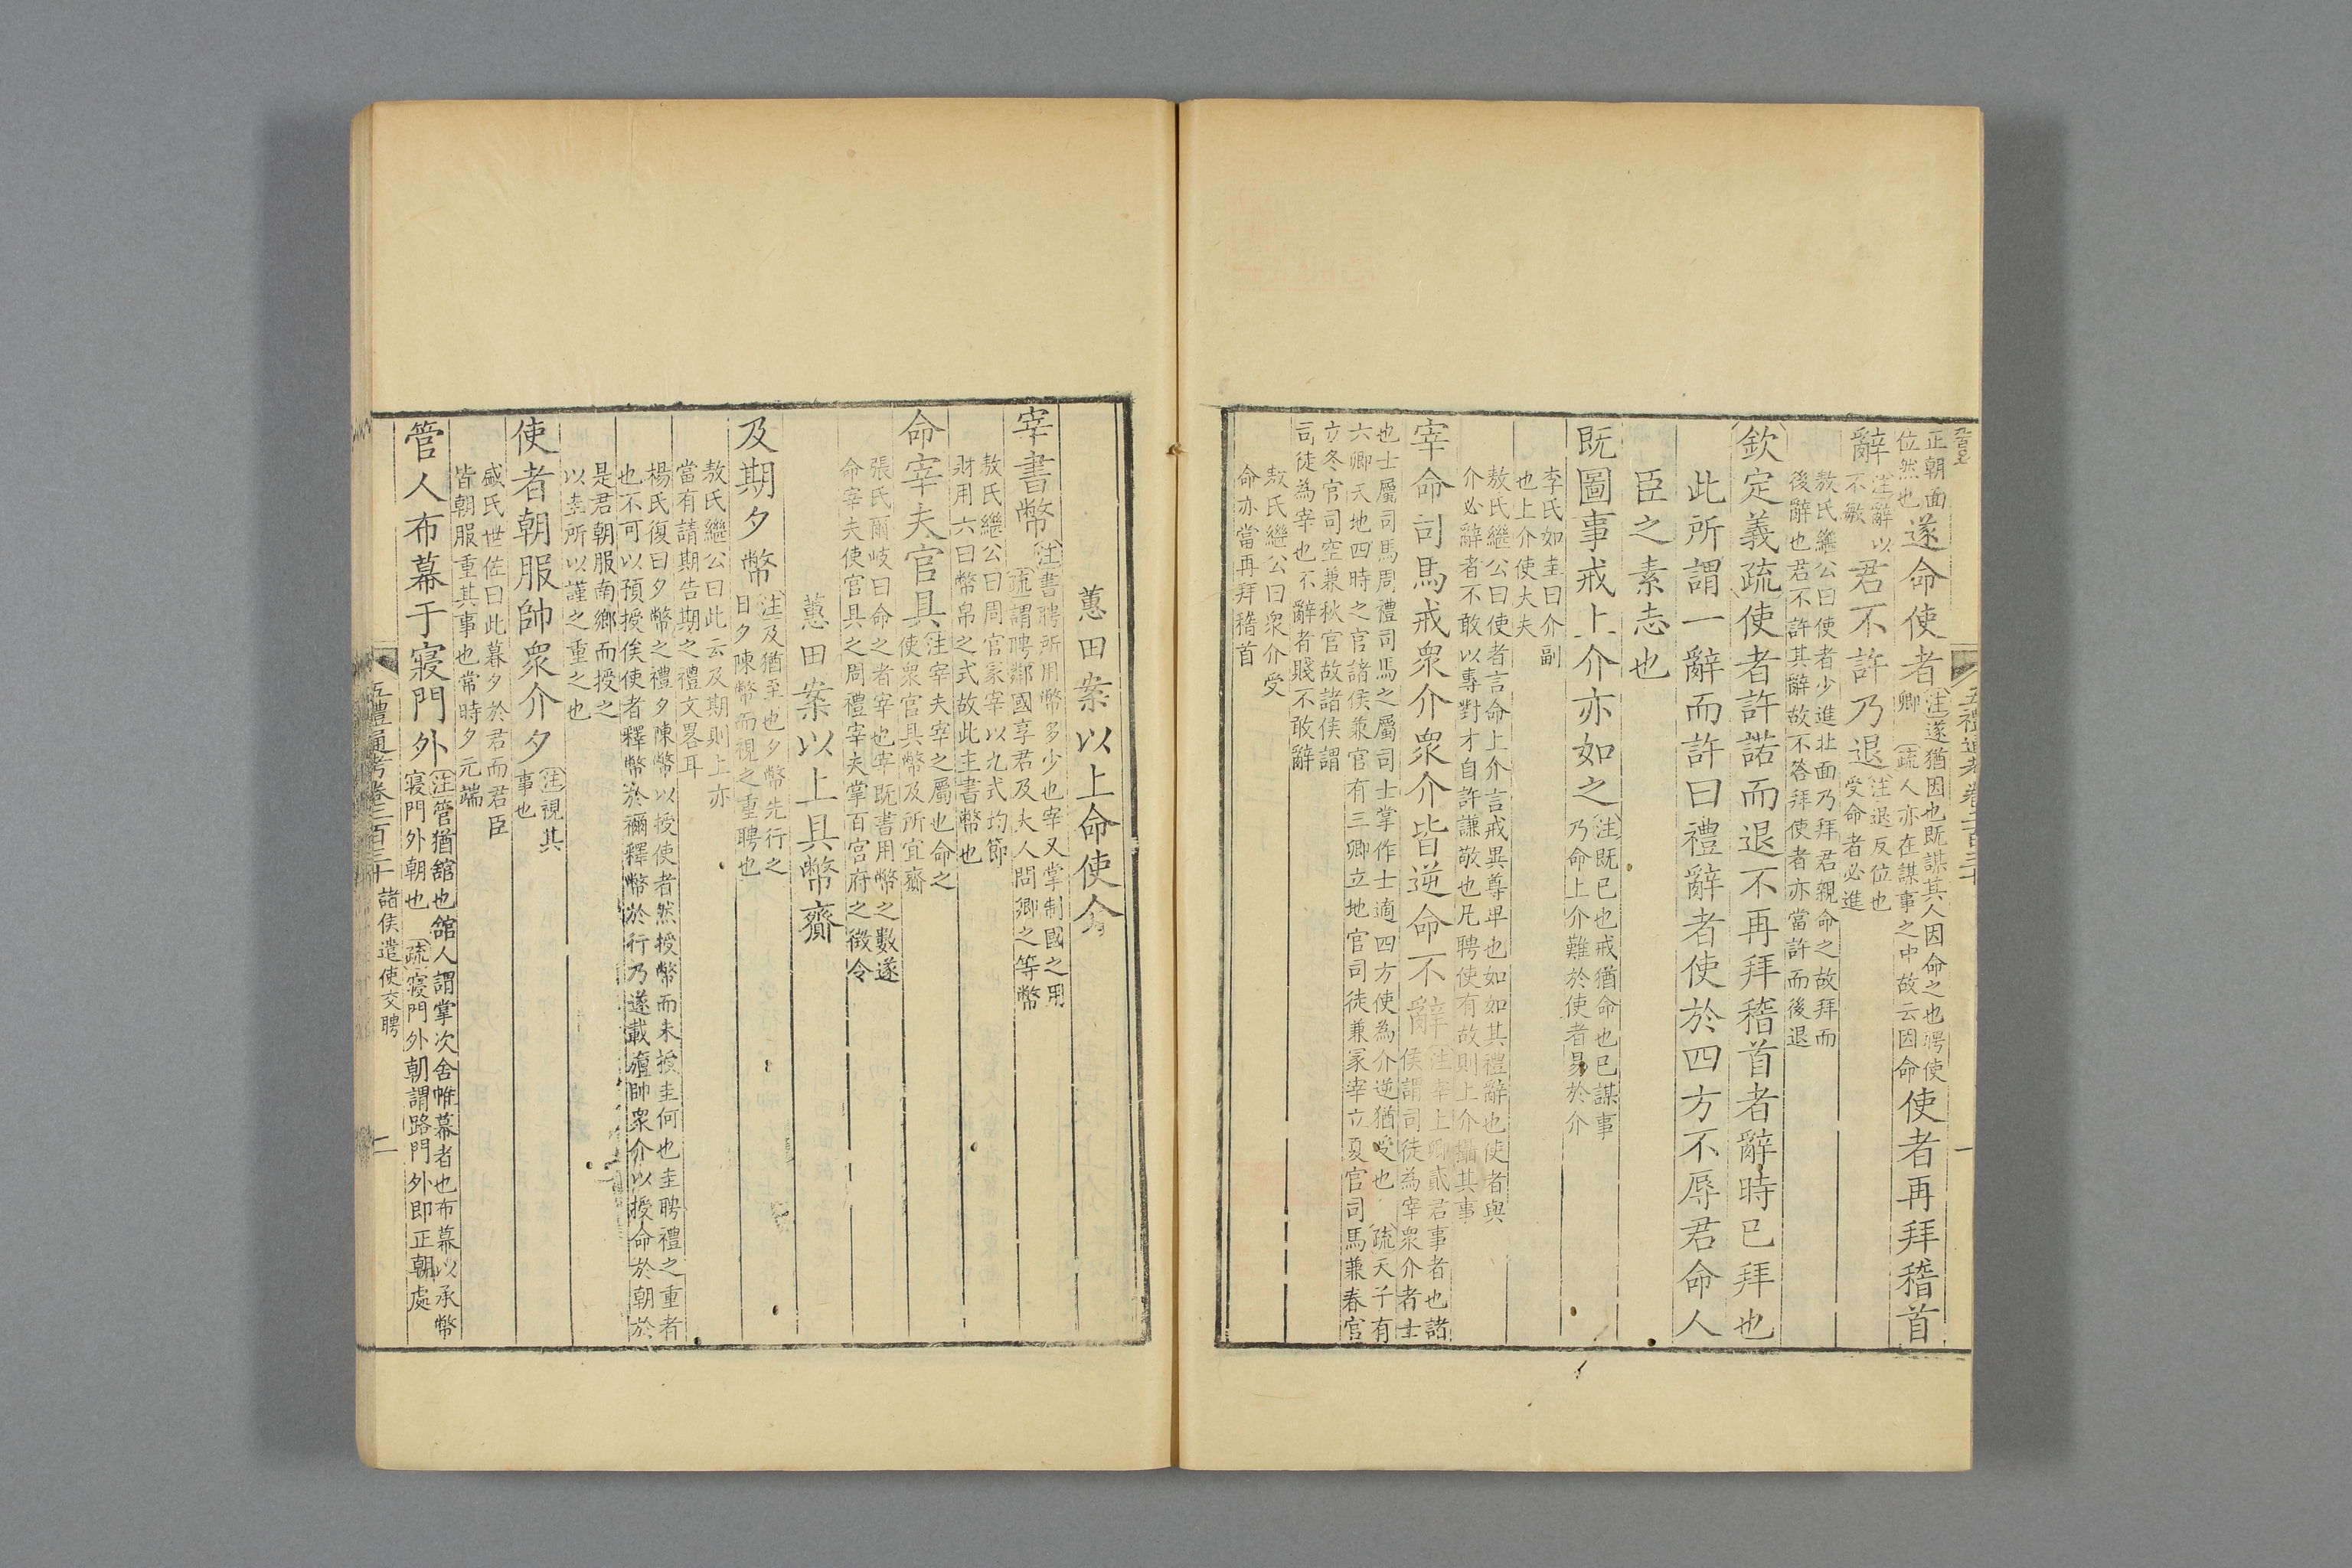 正朝面
位然也
遂命使者
注遂猶因也既謀其人因命之也聘使
卿疏人亦在謀事之中故云因命
使者再拜稽首
辭
注辭以
不敏
君不許乃退
注退反位也
受命者必進
敖氏繼公曰使者少進北面乃拜君親命之故拜而
後辭也君不許其辭故不答拜使者亦當許而後退
欽定義疏使者許諾而退不再拜稽首者辭時已拜也
此所謂一辭而許曰禮辭者使於四方不辱君命人
臣之素志也
既圖事戒上介亦如之
注既已也戒猶命也已謀事
乃命上介難於使者易於介
李氏如圭曰介副
也上介使大夫
敖氏繼公曰使者言命上介言戒異尊卑也如如其禮辭也使者與
介必辭者不敢以專對才自許謙敬也凡聘使有故則上介攝其事
宰命司馬戒眾介眾介皆逆命不辭
注宰上卿貳君事者也諸
侯謂司徒為宰眾介者士
也士屬司馬周禮司馬之屬司士掌作士適四方使為介逆猶受也疏天子有
六卿天地四時之官諸侯兼官有三卿立地官司徒兼冢宰立夏官司馬兼春官
立冬官司空兼秋官故諸侯謂
司徒為宰也不辭者賤不敢辭
敖氏繼公曰眾介受
命亦當再拜稽首
蕙田案以上命使介
宰書幣
注書聘所用幣多少也宰又掌制國之用
疏謂聘鄰國享君及夫人問卿之等幣
敖氏繼公曰周官冢宰以九式均節
財用六曰幣帛之式故此主書幣也
命宰夫官具
注宰夫宰之屬也命之
使眾官具幣及所宜齎
張氏爾岐曰命之者宰也宰既書用幣之數遂
命宰夫使官具之周禮宰夫掌百官府之徵令
蕙田案以上具幣齎
及期夕幣
注及猶至也夕幣先行之
日夕陳幣而視之重聘也
敖氏繼公曰此云及期則上亦
當有請期告期之禮文畧耳
楊氏復曰夕幣之禮夕陳幣以授使者然授幣而未授圭何也圭聘禮之重者
也不可以預授俟使者釋幣於禰釋幣於行乃遂載旜帥眾介以授命於朝於
是君朝服南鄉而授之
以圭所以謹之重之也
使者朝服帥眾介夕
注視其
事也
盛氏世佐曰此暮夕於君而君臣
皆朝服重其事也常時夕元端
管人布幕于寢門外
注管猶館也館人謂掌次舍帷幕者也布幕以承幣
寢門外朝也疏寢門外朝謂路門外即正朝處
五禮通考卷二百三十 諸侯遣使交聘 二